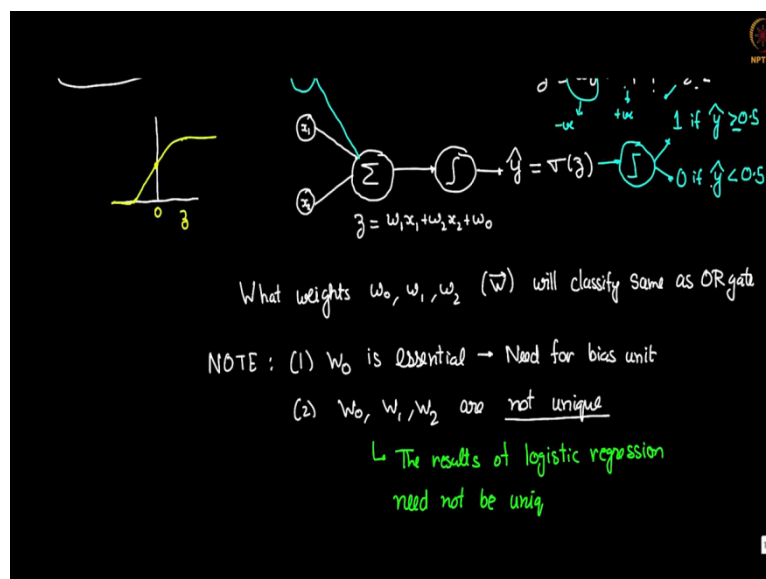 NPT
-ve
+ve
1 if ŷ ≥ 0.5
x₁
Σ
∫
ŷ = σ(z)
∫
0 if ŷ < 0.5
x₂
0 z
z = w₁x₁+w₂x₂+w₀
What weights w₀, w₁, w₂ (w⃗) will classify same as OR gate
NOTE : (1) W₀ is essential → Need for bias unit
(2) W₀, W₁, W₂ are not unique
↳ The results of logistic regression
need not be uniq